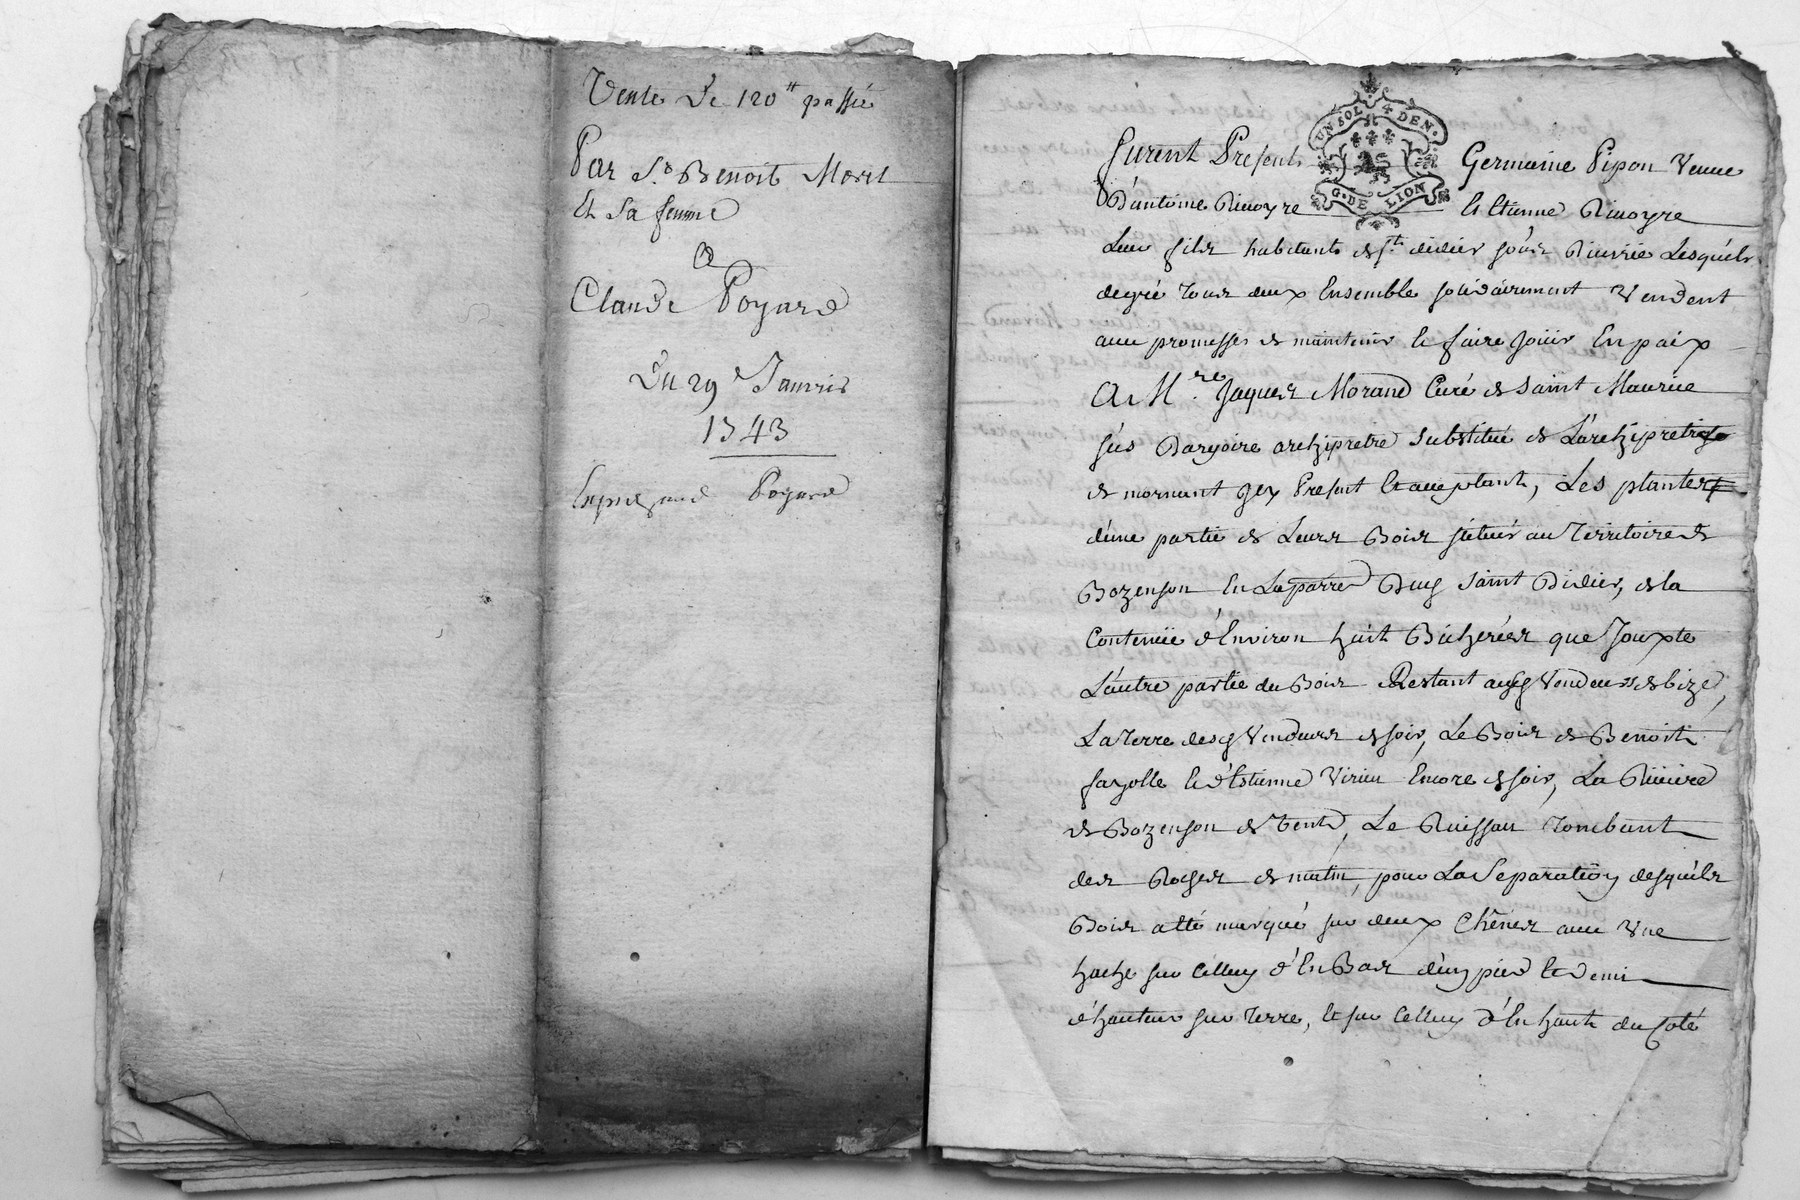 Vente De 120 ₶ passée
Par Sr. Benoit Morel
Et Sa femme
a
Claude Poyard
Du 29e Janvier
1743
Poyard
UN SOL 4 DEN.
G. DE LION
furent Presents Germaine Pipon Veuve
D'antoine Rivoyre Et Etienne Rivoyre
Leur fils habitants de St. didier sous Riverie Lesquels
de gré tous deux Ensemble solidairement Vendent
avec promesse de maintenir et faire Jouir En paix
A Mre. Jaques Morand Curé de Saint Maurice
sus Dargoire archiprêtre Substitué de L'archiprêtré
de mornant icy Present Et acceptant, Les plantes
d'une partie de Leurs Bois situés au Territoire de
Bozenson En La parre Dud Saint Didier, de la
Contenüe d'Environ huit Bicherées que Jouxte
L'autre partie du Bois Restant auxd Vendeurs de bize,
La Terre desd Vendeurs de soir, Le Bois de Benoit
fayolle Et d'Estienne Virieu Encore de soir, La Riviere
de Bozenson de Vent, Le Ruissau Tombant
des Roches de matin, pour La Separation desquels
Bois a été marqué sur deux Chênes avec Une
hache sur Celluy d'En Bas d'un pied Et Demi
d'hauteur sur Terre, Et sur Celluy d'En haut du Coté